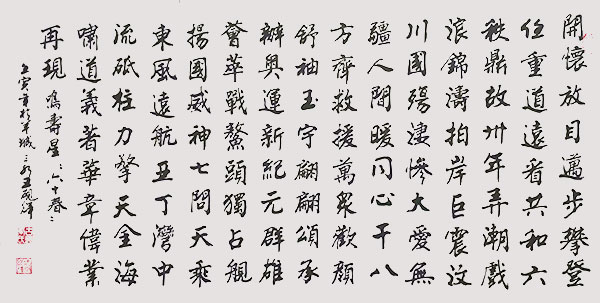 開懷放目邁步攀登
任重道遠看共和六
秩鼎故卅年弄潮戲
浪錦濤拍岸巨震汶
川國殤淒慘大愛無
疆人間暖同心千八
方齊救援萬眾歡顏
舒袖玉宇翩翩頌承
辦奧運新紀元群雄
薈萃戰鰲頭獨占觀
揚國威神七問天乘
東風遠航亞丁灣中
流砥柱力擎天金海
嘯道義者華章偉業
再現
壽星 六十春